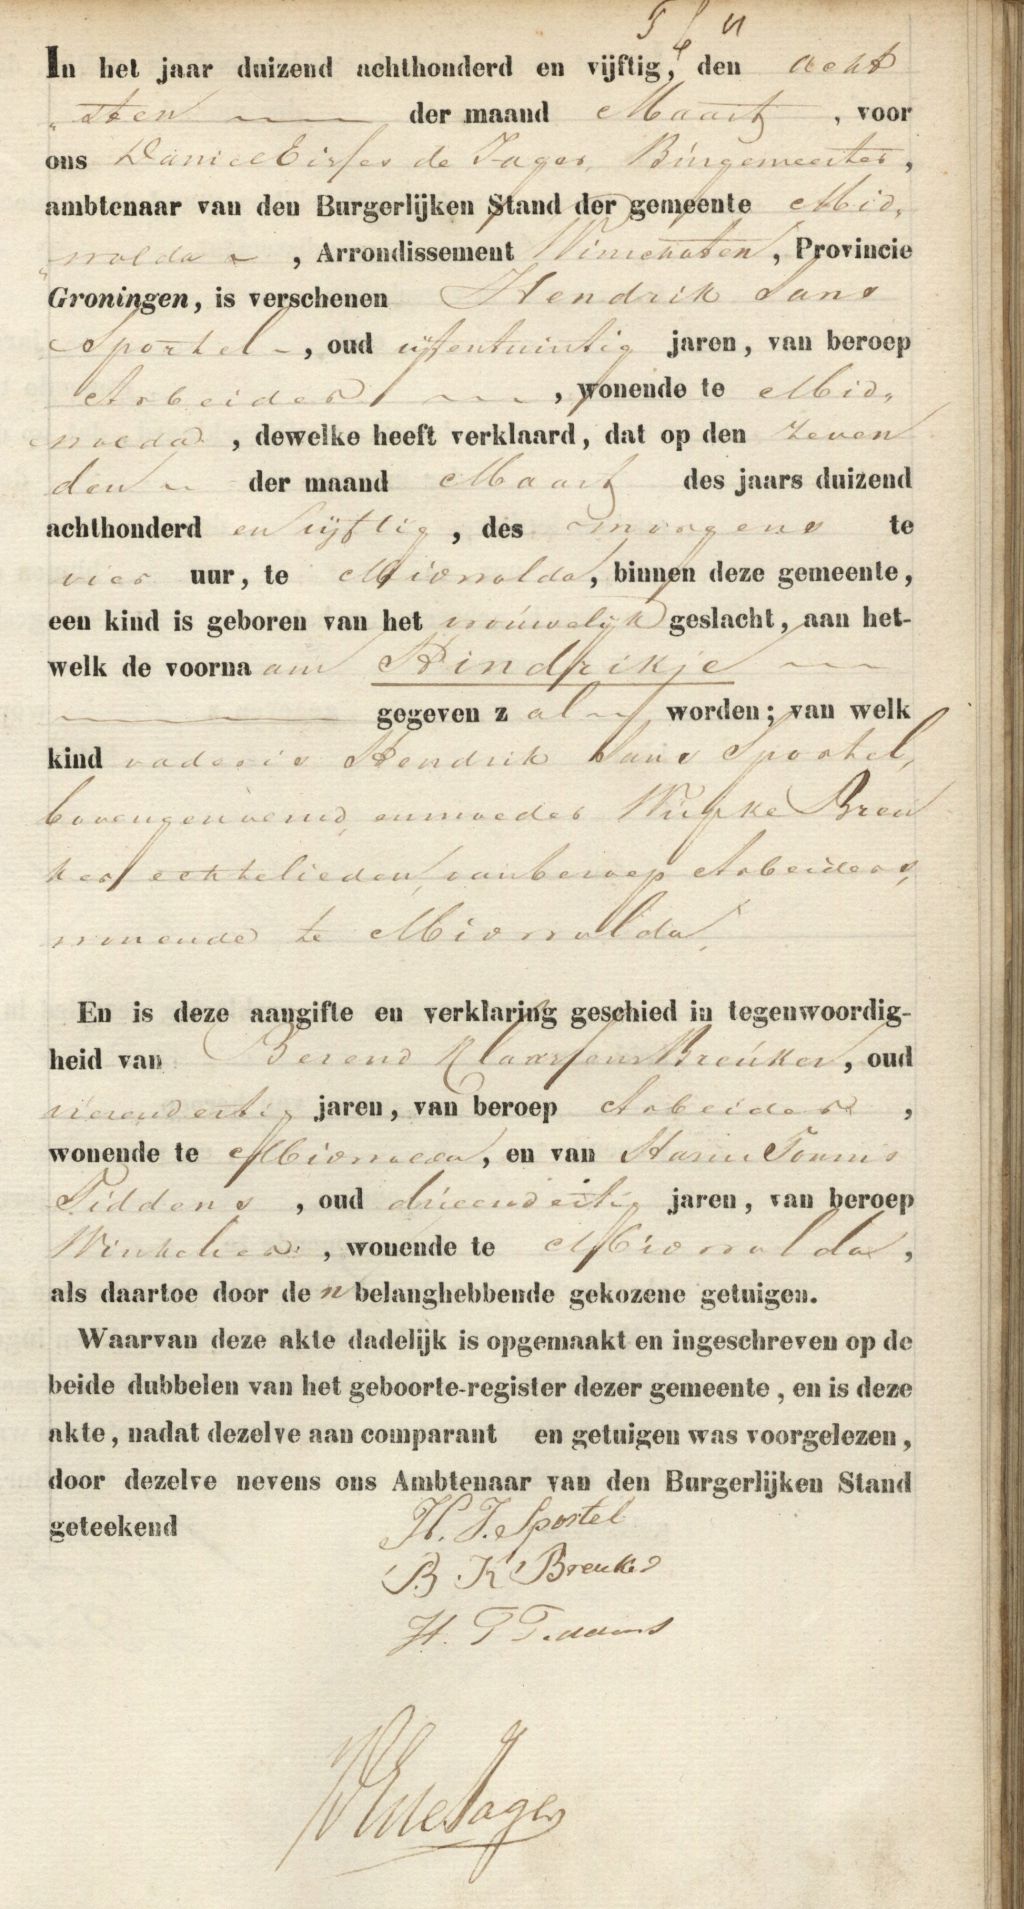 In het jaar duizend achthonderd en vijftig, den acht
"sten der maand Maart, voor
ons Daniel Eisses de Jager, Burgemeester,
ambtenaar van den Burgerlijken Stand der gemeente Mid"
"wolda, Arrondissement Winschoten, Provincie
Groningen, is verschenen Hendrik Jans
Sportel, oud vijfentwintig jaren, van beroep
Arbeider, wonende te Mid"
wolda, dewelke heeft verklaard, dat op den zeven
den der maand Maart des jaars duizend
achthonderd en vijftig, des morgens te
vier uur, te Midwolda, binnen deze gemeente,
een kind is geboren van het vrouwelijk geslacht, aan het-
welk de voornaam Hindrikje
gegeven zal worden; van welk
kind vader is Hendrik Jans Sportel,
bovengenoemd, en moeder Wupke Breu
ker, echtelieden, van beroep Arbeiders,
wonende te Midwolda.
En is deze aangifte en verklaring geschied in tegenwoordig-
heid van Berend Klaassens Breuker, oud
vierendertig jaren, van beroep Arbeider,
wonende te Midwolda, en van Harm Tonnis
Tiddens, oud drieendertig jaren, van beroep
Winkelier, wonende te Midwolda,
als daartoe door den belanghebbende gekozene getuigen.
Waarvan deze akte dadelijk is opgemaakt en ingeschreven op de
beide dubbelen van het geboorte-register dezer gemeente, en is deze
akte, nadat dezelve aan comparant en getuigen was voorgelezen,
door dezelve nevens ons Ambtenaar van den Burgerlijken Stand
geteekend
H. J. Sportel
B K Breuker
H. T Tiddens
DE de Jager